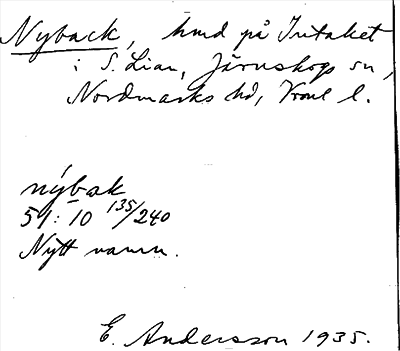 Nyback, hmd på Intaket
i S. Lian, Järnskogs sn,
Nordmarks hd, Vrml l.
nýbak
51: 10 135/240
Nytt namn.
E. Andersson 1935.